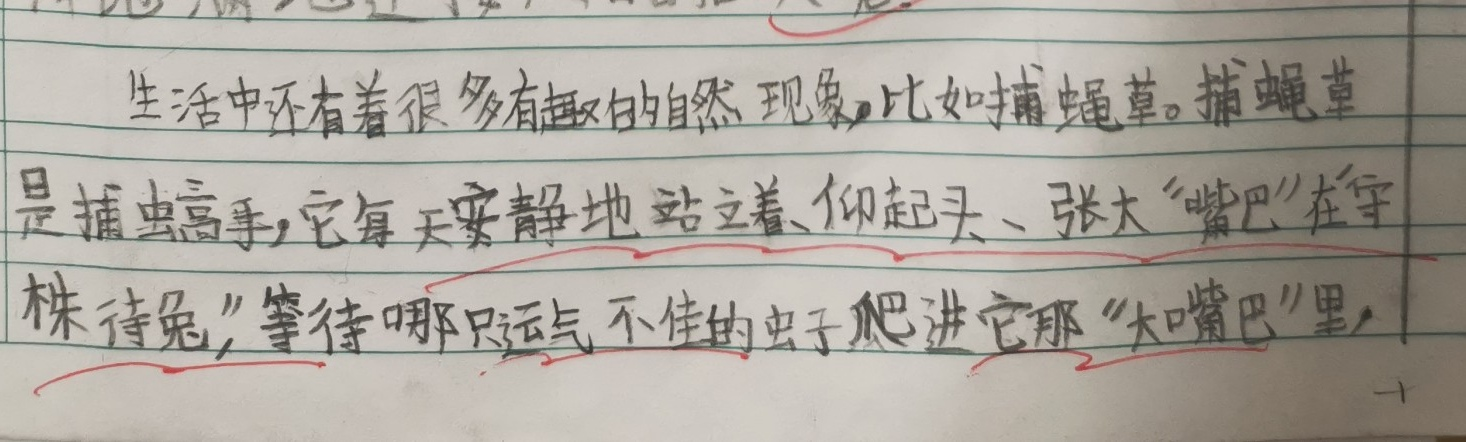 生活中还有着很多有趣的自然现象，比如捕蝇草。捕蝇草
是捕虫高手，它每天安静地站立着、仰起头、张大“嘴巴”在“守
株待兔”，等待哪只运气不佳的虫子爬进它那“大嘴巴”里，